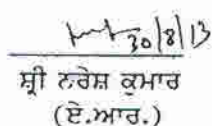 30/8/13
ਸ਼੍ਰੀ ਨਰੇਸ਼ ਕੁਮਾਰ
(ਏ.ਆਰ.)